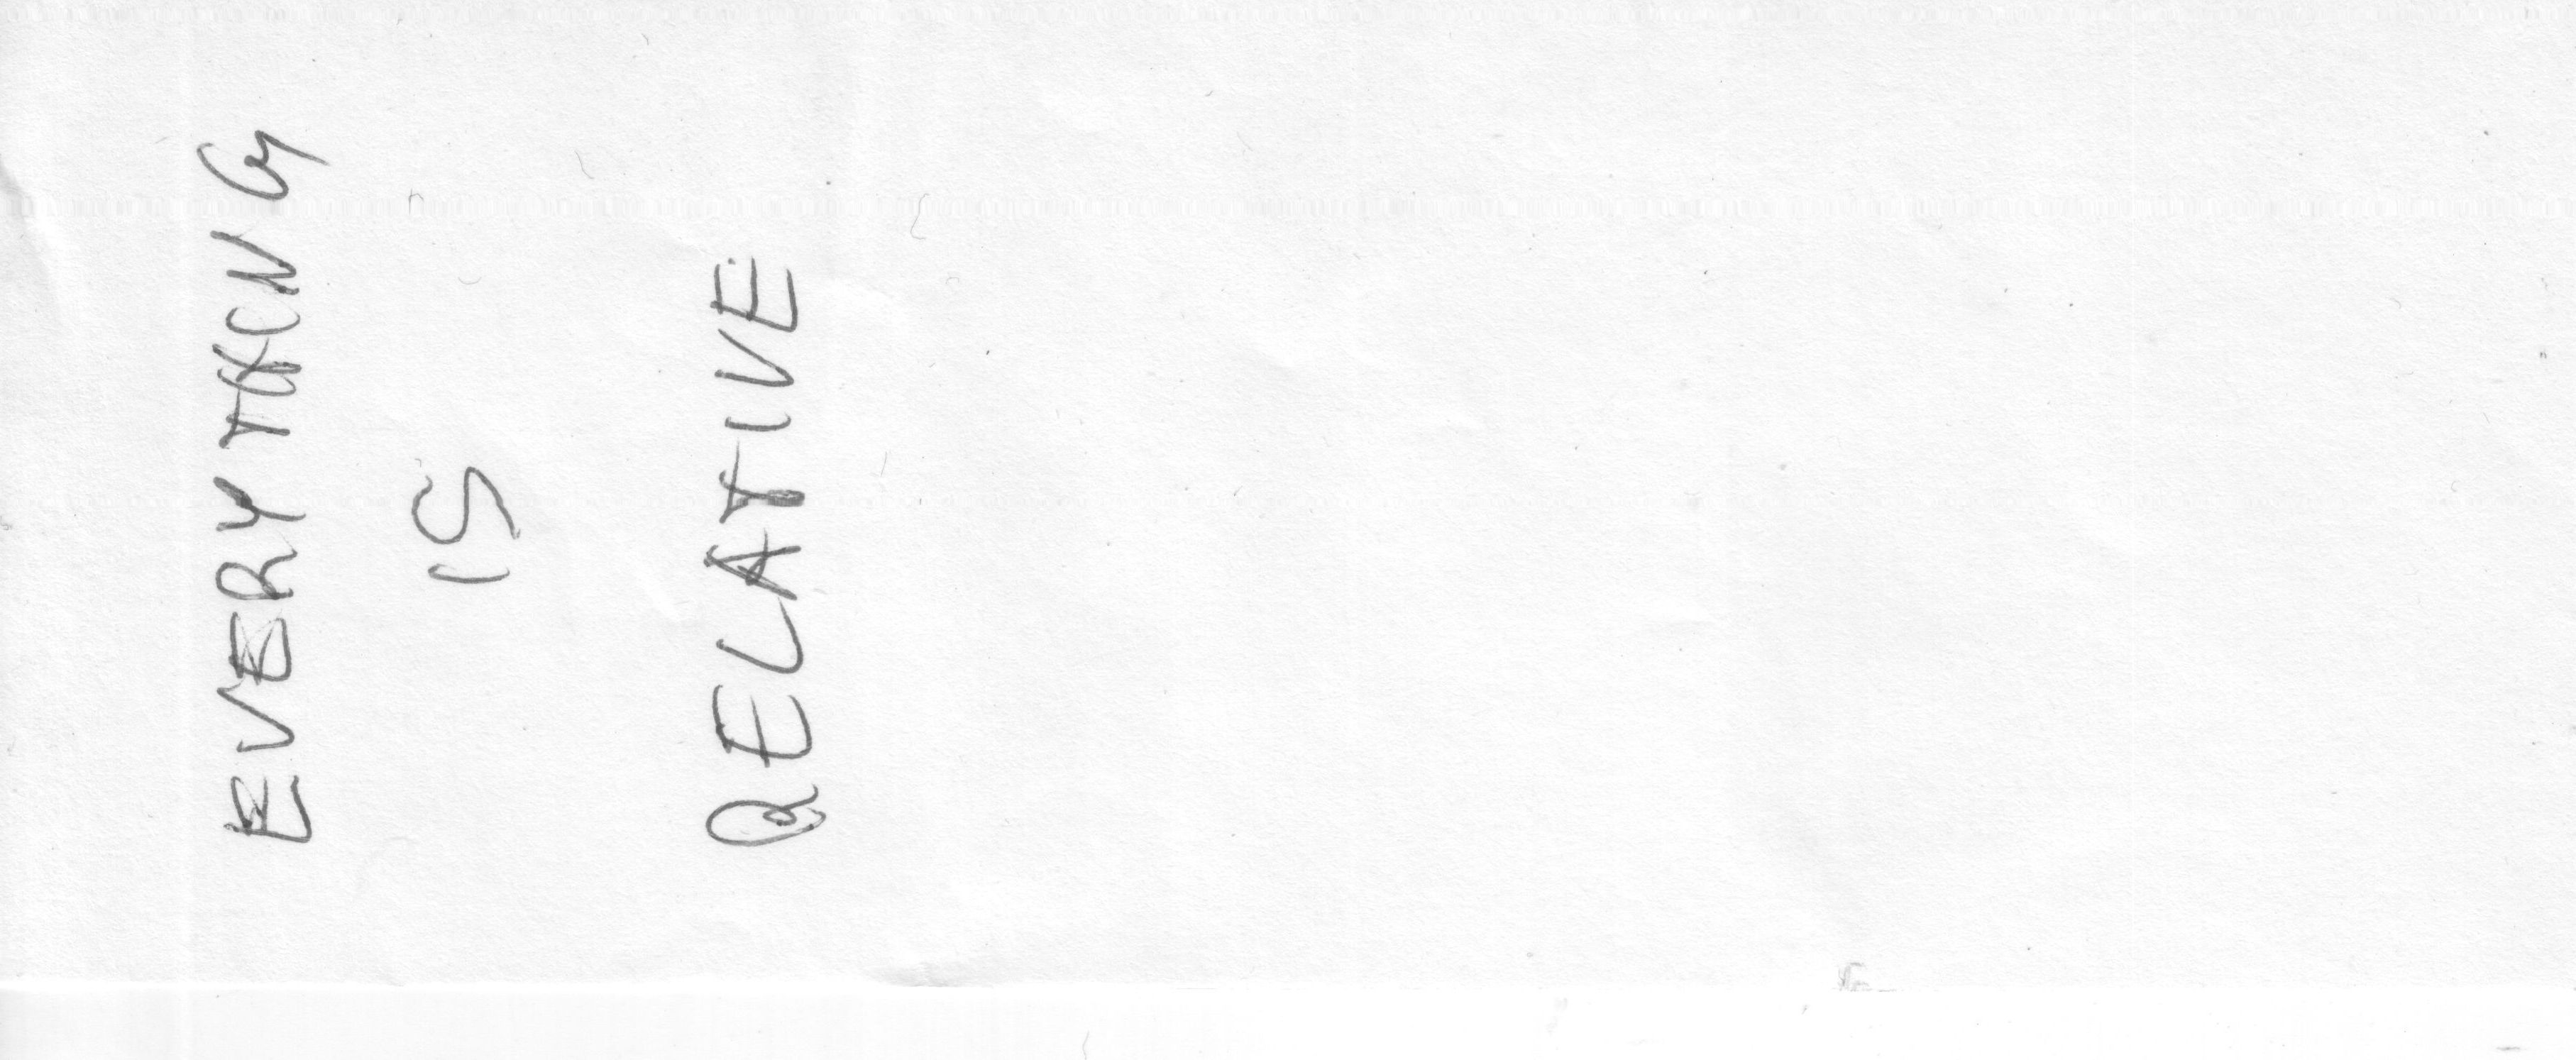 EVERYTHING
IS
RELATIVE